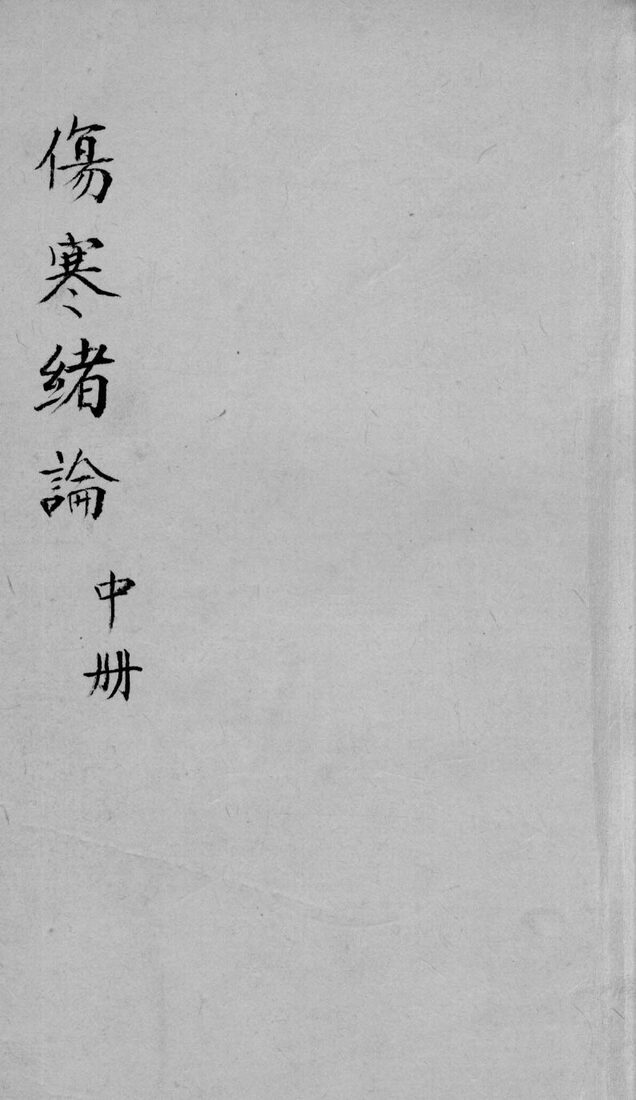 傷寒緒論
中册